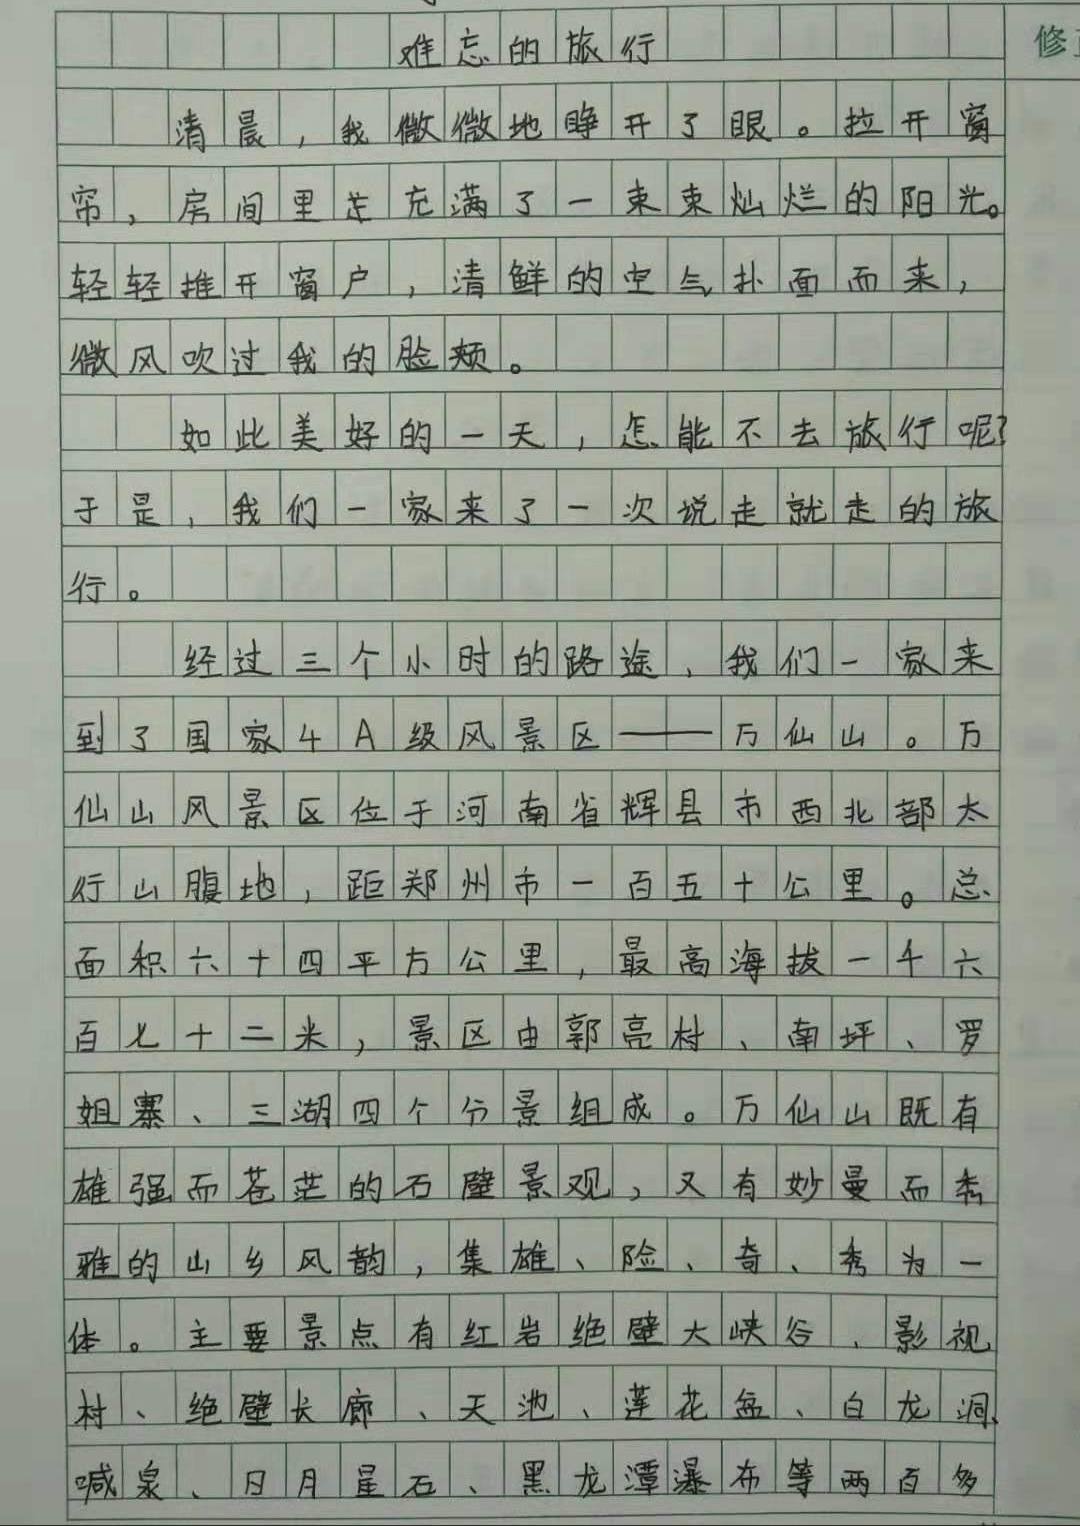 难忘的旅行
修
清晨，我微微地睁开了眼。拉开窗
帘，房间里芒充满了一束束灿烂的阳光。
轻轻推开窗户，清鲜的空气扑面而来，
微风吹过我的脸颊。
如此美好的一天，怎能不去旅行呢？
于是，我们一家来了一次说走就走的旅
行。
经过三个小时的路途，我们一家来
到了国家4A级风景区——万仙山。万
仙山风景区位于河南省辉县市西北部太
行山腹地，距郑州市一百五十公里。总
面积六十四平方公里，最高海拔一千六
百七十二米，景区由郭亮村、南坪、罗
姐寨、三湖四个分景组成。万仙山既有
雄强而苍茫的石壁景观，又有妙曼而秀
雅的山乡风韵，集雄、险、奇、秀为一
体。主要景点有红岩绝壁大峡谷、影视
村、绝壁长廊、天池、莲花盆、白龙洞、
喊泉、日月星石、黑龙潭瀑布等两百多